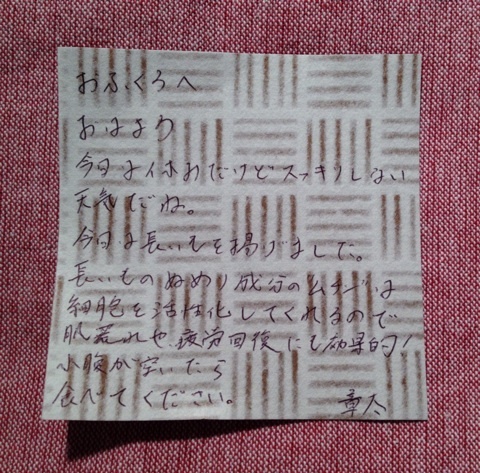 おふくろへ
おはよう
今日は休みだけどスッキリしない
天気だね。
今日は長いもを揚げました。
長いものぬめり成分のムチンは
細胞を活性化してくれるので
肌荒れや、疲労回復にも効果的！
小腹が空いたら
食べてください。
章太